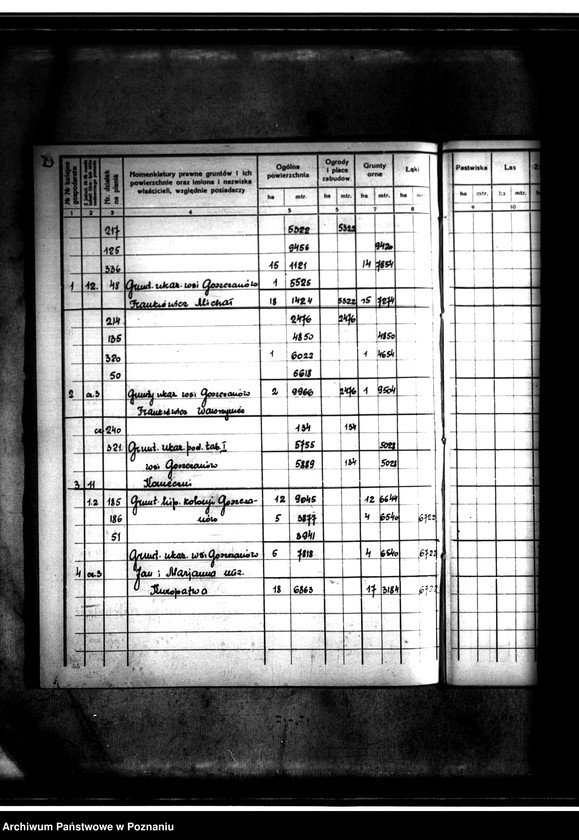 Nr. działek na planie
Nomenklatury prawne gruntów i ich powierzchnie oraz imiona i nazwiska właścicieli, względnie posiadaczy
Ogólna powierzchnia
Ogrody i place zabudow.
Grunty orne
Łąki
Pastwiska
Las
ha mtr. ha mtr. ha mtr. ha ha mtr. mtr.
1 2 3 4 5 6 7 8 9 10
217 5322 5322
125 9456 9420
336 15 1121 14 7854
1 12. 48 Grunt. ukaz. wsi Goszczanów 1 5525
Frankiewicz Michał 18 1424 5322 15 7274
214 2476 2476
135 4850 4850
320 1 6022 1 4654
50 6618
2 Grunty ukaz. wsi Goszczanów 2 9966 2476 1 9504
Frankiewicz Wawrzyniec
240 134 134
321 Grunt. ukaz. pod. tab. I 5755 5028
wsi Goszczanów 5889 134 5028
3 11
1.2 185 Grunt. hip. kolonji Goszcza- 12 9045 12 6644
186 nów 5 3877 4 6540 6722
51 3941
Grunt. ukaz. wsi Goszczanów 6 7818 4 6540 6722
4 Jan i Marjanna
Kuropatwa 18 6863 17 3184 6722
Archiwum Państwowe w Poznaniu